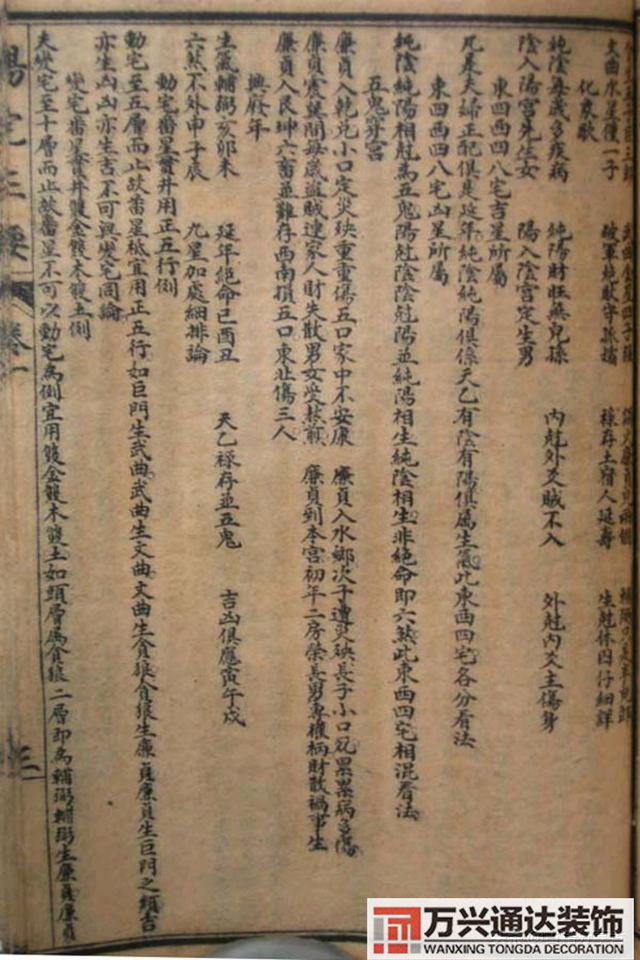 文曲水星僅一子 破軍絶敗守孤孀 祿存土宿人延壽 生尅休囚仔細詳
化象歌
純陰每歲多疾病 純陽財旺無兒孫 內尅外爻賊不入 外尅內爻主傷身
陰入陽宮先生女 陽入陰宮定生男
東四西四八宅吉星所屬
凡產夫婦正配俱是延年純陰純陽俱係天乙有陰有陽俱屬生氣此東西四宅各分看法
東四西四八宅凶星所屬
純陰純陽相尅為五鬼陽尅陰陰尅陽並純陽相生純陰相生非絕命即六煞此東西四宅相混看法
五鬼穿宮
廉貞入乾兌小口定災殃重重傷五口家中不安康 廉貞入水鄉次子遭災殃長子小口死累累病多傷
廉貞震巽間每歲盜賊連家人財失散男女受熬煎 廉貞到本宮初年二房榮長男專權柄財散禍事生
廉貞入艮坤六畜並難存西南損五口東北傷三人
興廢年
生氣輔弼亥卯未 延年絕命巳酉丑 天乙祿存並五鬼 吉凶俱應寅午戌
六煞不外申子辰 九星加處細排論
動宅番星貫井用正五行例
動宅至五層而止故番星秪宜用正五行如巨門生武曲武曲生文曲文曲生貪狼貪狼生廉貞廉貞生巨門之類吉
亦生凶凶亦生吉不可與變宅同論
變宅番星貫井雙金雙木雙土例
夫變宅至十層而止故番星不可以動宅為例宜用雙金雙木雙土如頭層為貪狼二層即為輔弼輔弼生廉貞廉貞
陽宅三要 卷一 三
万兴通达装饰
WANXING TONGDA DECORATION